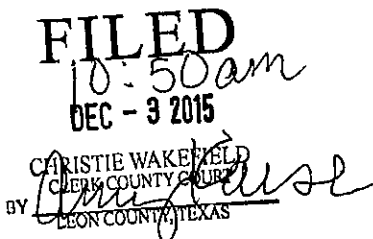 FILED
10:50am
DEC - 3 2015
CHRISTIE WAKEFIELD
CLERK COUNTY COURT
BY
LEON COUNTY, TEXAS